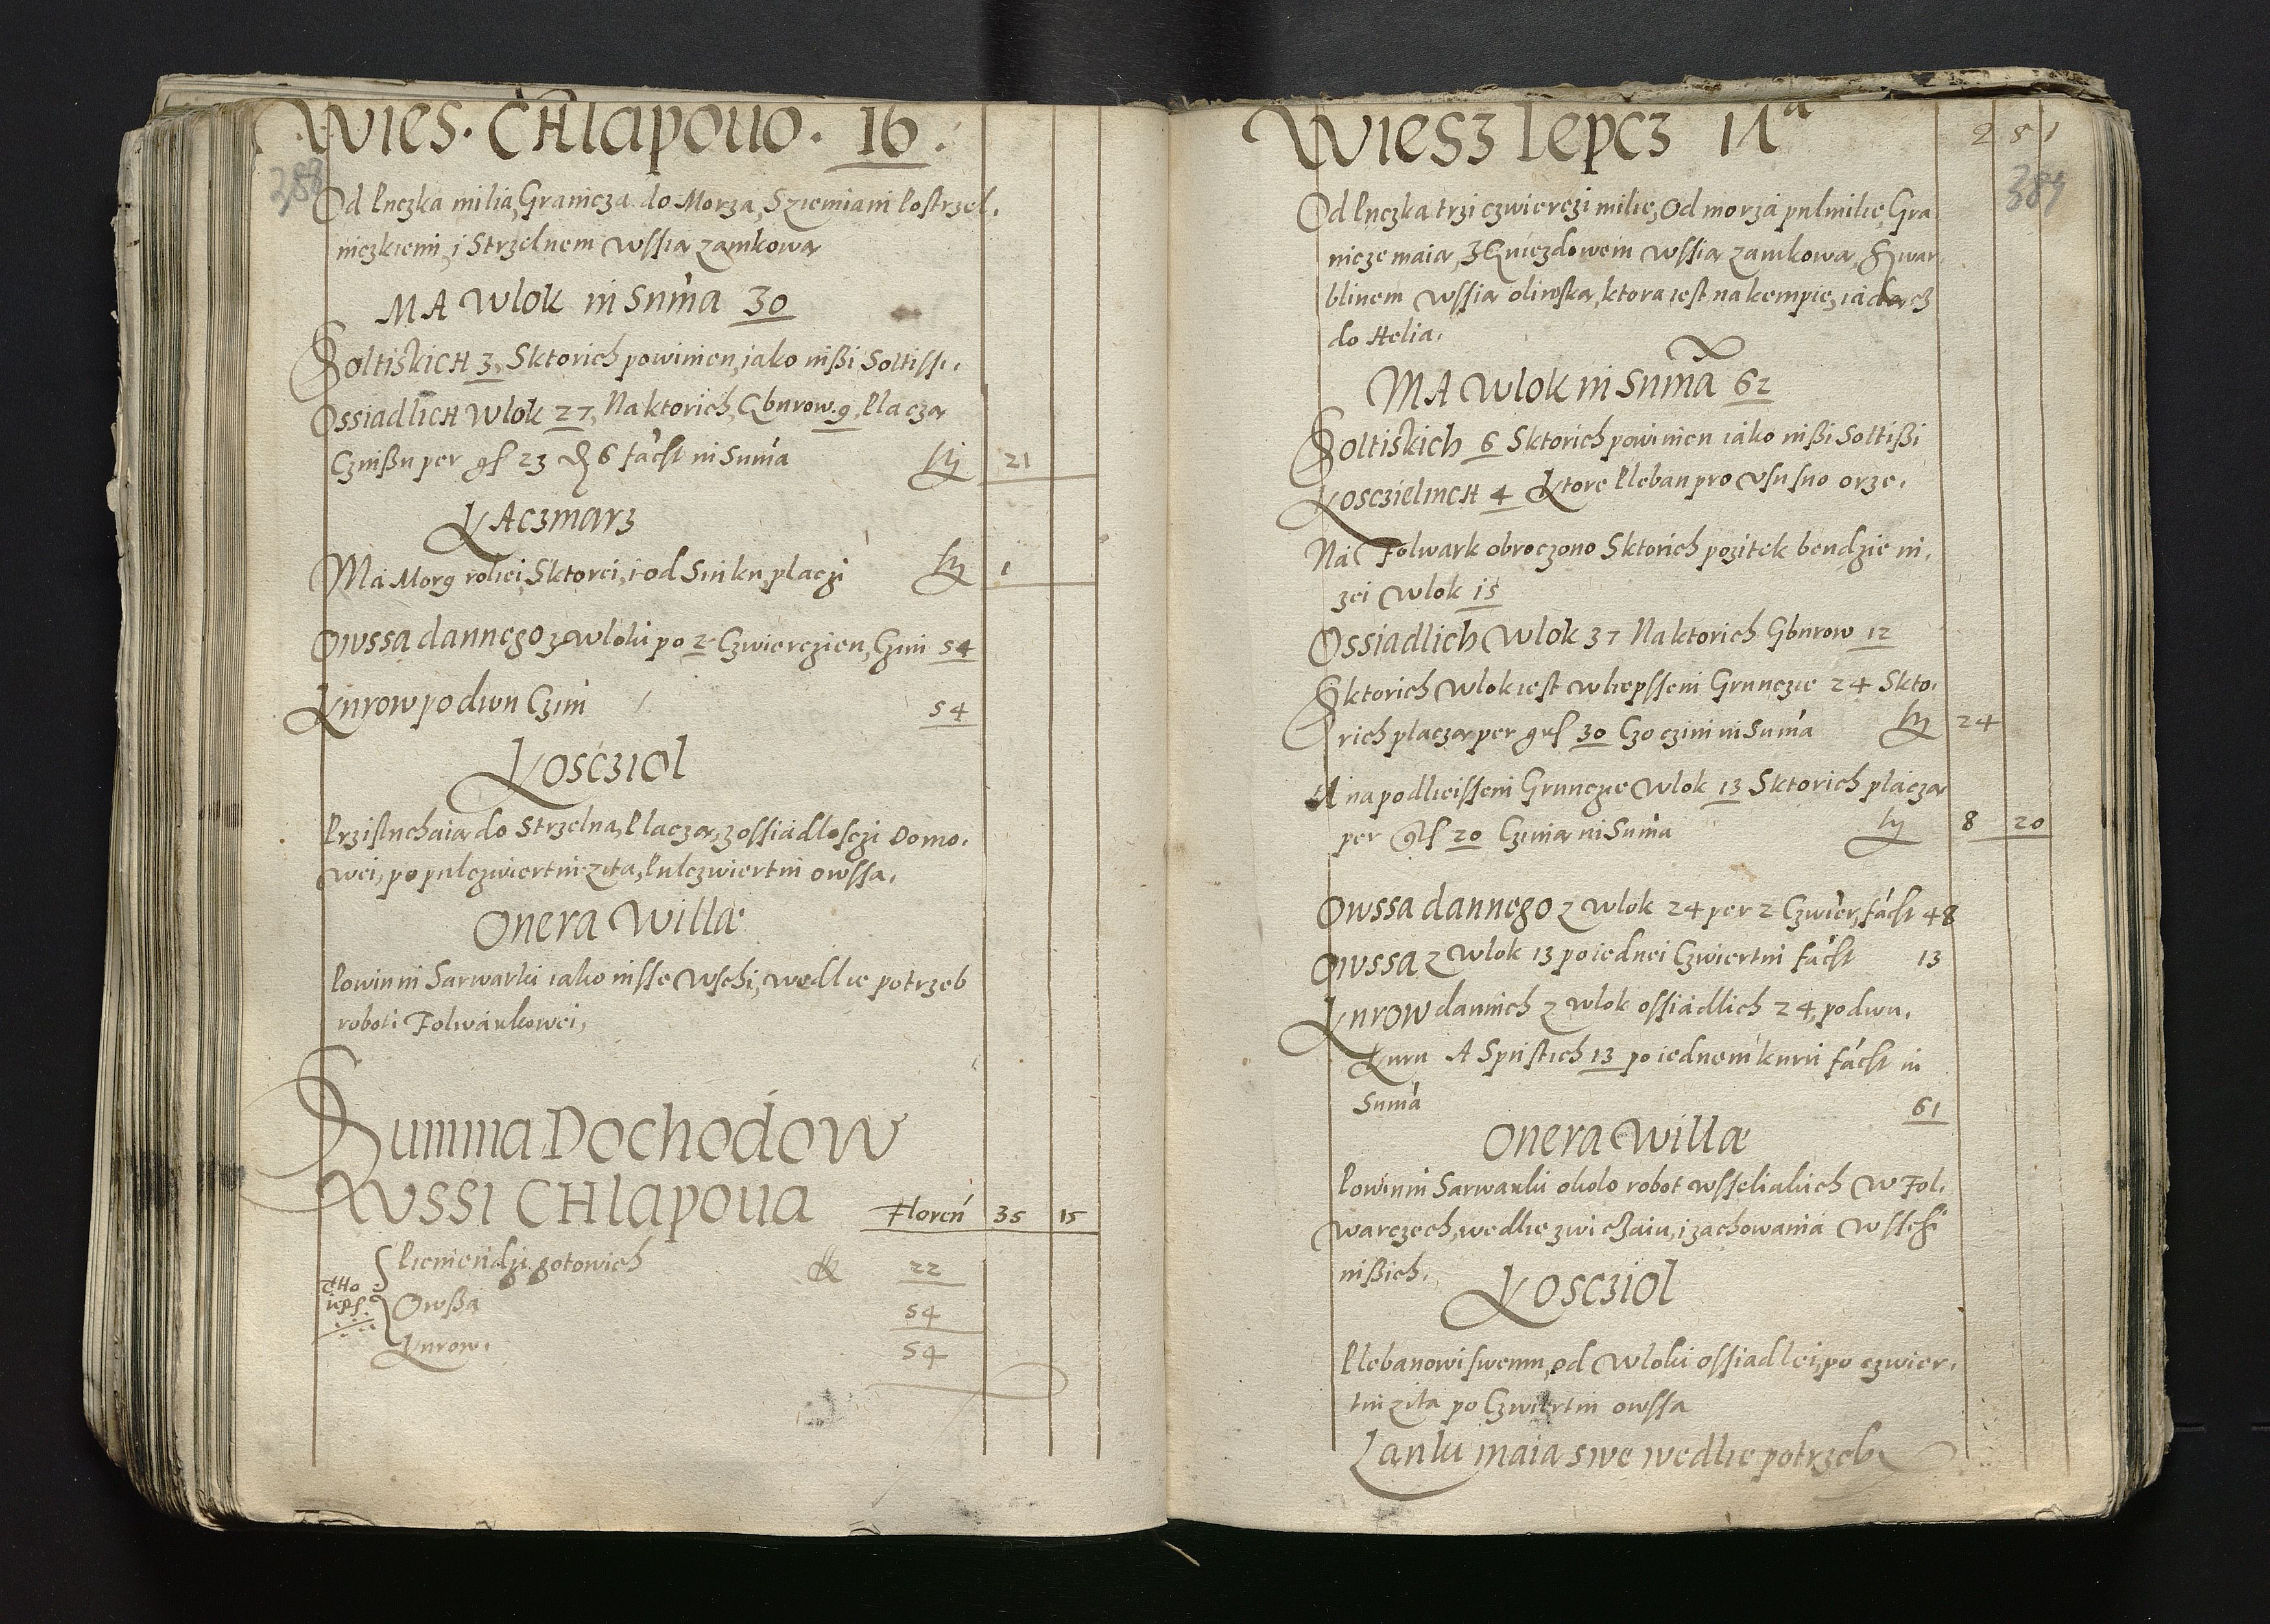 Wies. CHlapouo. 16.
388
Od Puczka milia, Granicza do Morza, Sziemiani Postrzel.
niczkiemi, i Strzelnem Wssią zamkową
MA Wlok in Suma 30
SoltiskicH 3, Sktorich powinien, jako inßi Soltissi.
OssiadlicH Wlok 27, Na ktorich, Gburow. 9, Placzą
Czinßu per gs 23 d 6 facst in Suma fly 21
KAczmarz
Ma Morg roliei, Sktorei, i od Sinku, placzi fly 1
Owssa dannego z wloki po 2 Czwierczien, Czini 54
Kurow po dwu Czini 54
Kosćziol
Przisluchaią do Strzelna, Placzą, z ossiadlosczi Domo.
wei, po pulczwiertni zita, Pulczwiertni owssa.
Onera Willæ
Powinni Sarwarki iako insse Wschi, wedlie potrzeb
roboti Folwarkowei,
Summa Dochodów
Wssi CHlapoua Floren 35 15
Pieniendzi gotowich fl 22
Owßa 54
Kurow. 54
Wiesz lepcz 17a
251
389
Od Puczka trzi czwierczi milie, Od morza pulmilie, Gra
nicze maią, z Gniezdowem Wssią zamkową, Swar.
blinem Wssią oliwską, ktora iest na kempie, iádącz
do Helia.
MA Wlok in Suma 62
Soltiskich 6 Sktorich powinien iáko inßi Soltißi
KosczielnicH 4 Ktore Pleban pro Usu suo orze.
Ná Folwark obroczono Sktorich pozitek bendzie ni.
zei Wlok 15
Ossiadlich Wlok 37 Na ktorich Gburow 12
Sktorich Wlok iest w liepssem Grunczie 24 Skto.
rich placzą per grs 30 Czo czini in Suma fly 24
A na podlieissem Grunczie Wlok 13 Sktorich placzą
per grs 20 Czinią in Suma fly 8 20
Owssa dannego z Wlok 24 per 2 Czwier, facst 48
Owssa z Wlok 13 po iednei Czwiertni facst 13
Kurow dannich z wlok ossiadlich 24, po dwu.
Kuru A Spustich 13 po iednem kuru facst in
Suma 61
Onera Willæ
Powinni Sarwarki okolo robot wsseliakich W Fol.
warczech, wedlie zwiczaiu, i zachowania Wsschi
inßich.
Kosczíol
Plebanowi swemu, od Wloki ossiadlei, po czwier.
tni zita po Czwiertni owssa
Lanki maia swe wedlie potrzebi